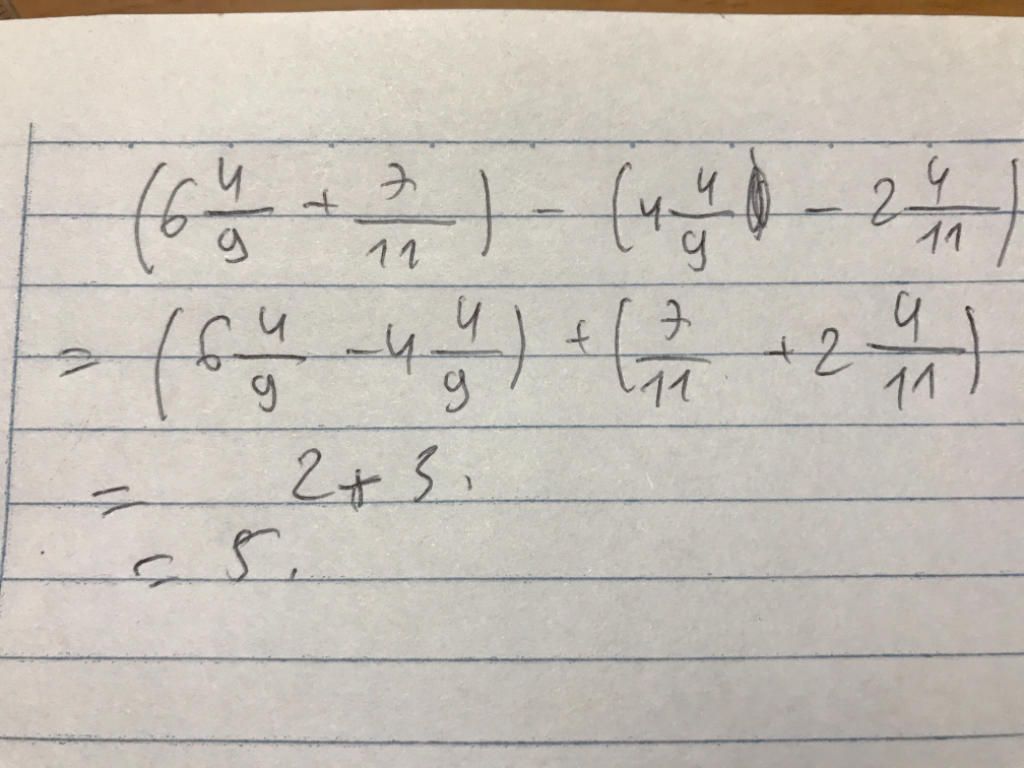 (6 4/9 + 7/11) - (4 4/9 - 2 4/11)
= (6 4/9 - 4 4/9) + (7/11 + 2 4/11)
= 2 + 3.
= 5.